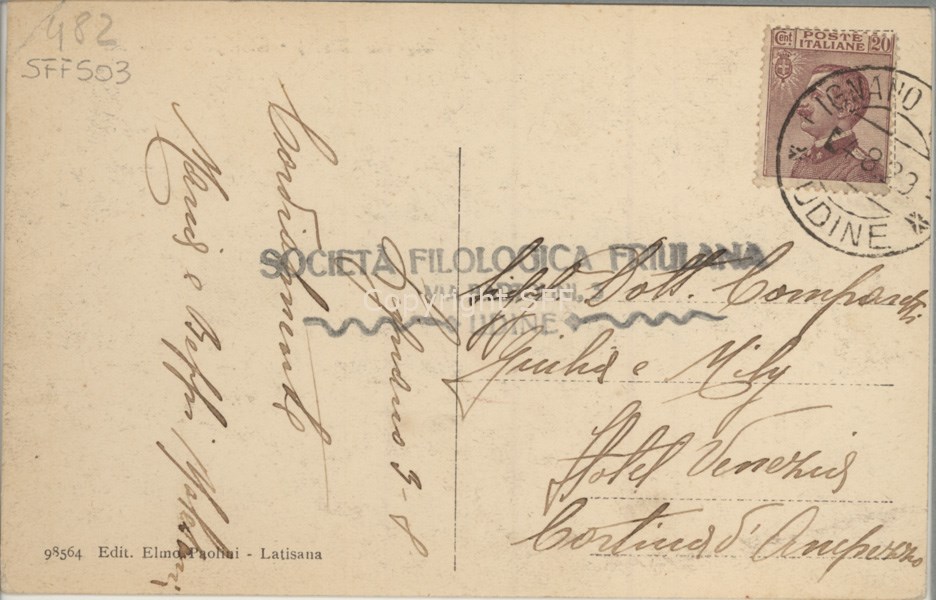 482
SFF503
Cent POSTE ITALIANE 20
LIGNANO
8.23
* UDINE *
SOCIETÀ FILOLOGICA FRIULANA
VIA
UDINE
Copyright SFF
Lignano 3-8
Cordialmente
e
Dott.
Giulia e Mily
Hotel Venezia
Cortina d'Ampezzo
98564 Edit. Elmo Paolini - Latisana